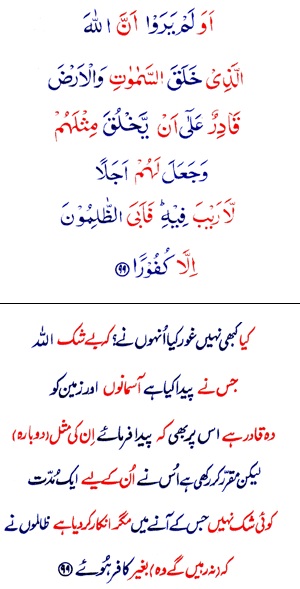 اَوَ لَمْ يَرَوْا اَنَّ اللّٰهَ
الَّذِىْ خَلَقَ السَّمٰوٰتِ وَالْاَرْضَ
قَادِرٌ عَلٰٓى اَنْ يَّخْلُقَ مِثْلَهُمْ
وَجَعَلَ لَهُمْ اَجَلًا
لَّا رَيْبَ فِيْهِ ؕ فَاَبَى الظّٰلِمُوْنَ
اِلَّا كُفُوْرًا ﴿۹۹﴾
کیا کبھی نہیں غور کیا اُنہوں نے؟ کہ بے شک اللہ
جس نے پیدا کیا ہے آسمانوں اور زمین کو
وہ قادر ہے اس پر بھی کہ پیدا فرمائے اِن کی مثل (دوبارہ)
لیکن مُقرّر کر رکھی ہے اُس نے اُن کے لیے ایک مُدّت
کوئی شک نہیں جس کے آنے میں مگر انکار کر دیا ہے ظالموں نے
کہ (نہ رہیں گے وہ) بغیر کافر ہُوئے ﴿۹۹﴾